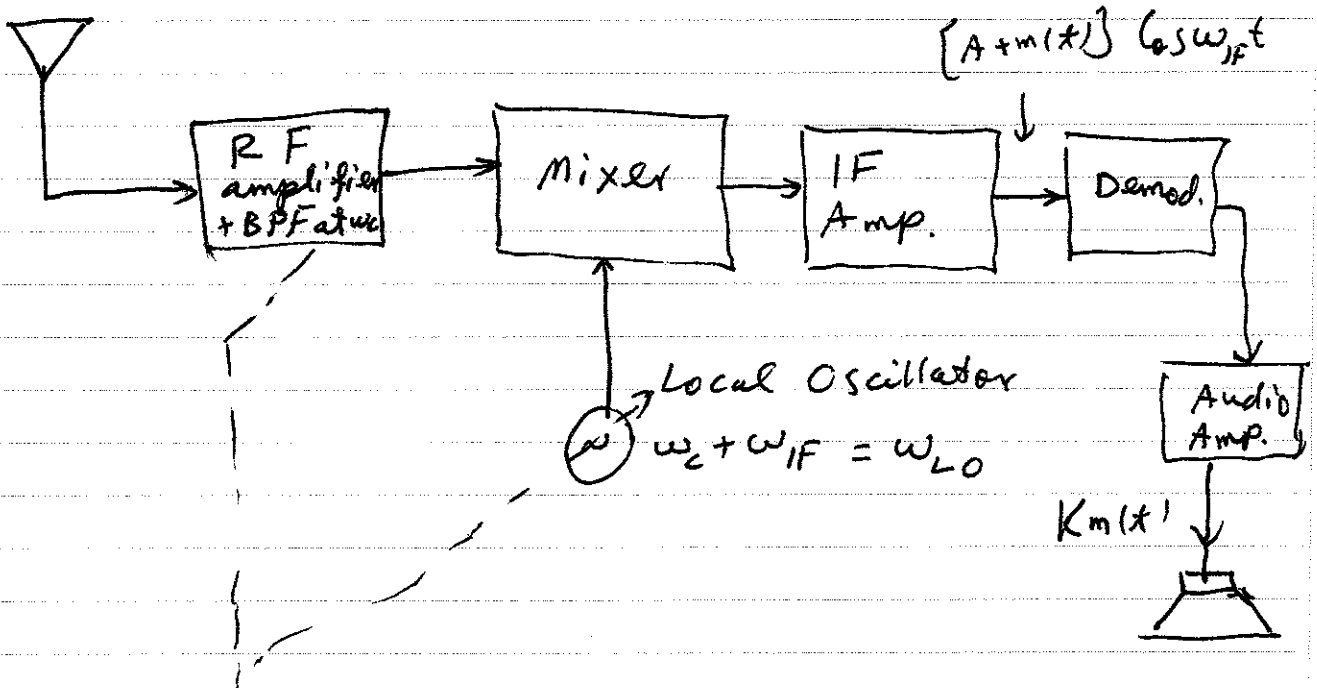 [A+m(t)] Cos ω_IF t
R F
amplifier
+BPF at ωc
Mixer
IF
Amp.
Demod.
Local Oscillator
~ ωc + ω_IF = ω_LO
Audio
Amp.
Km(t)